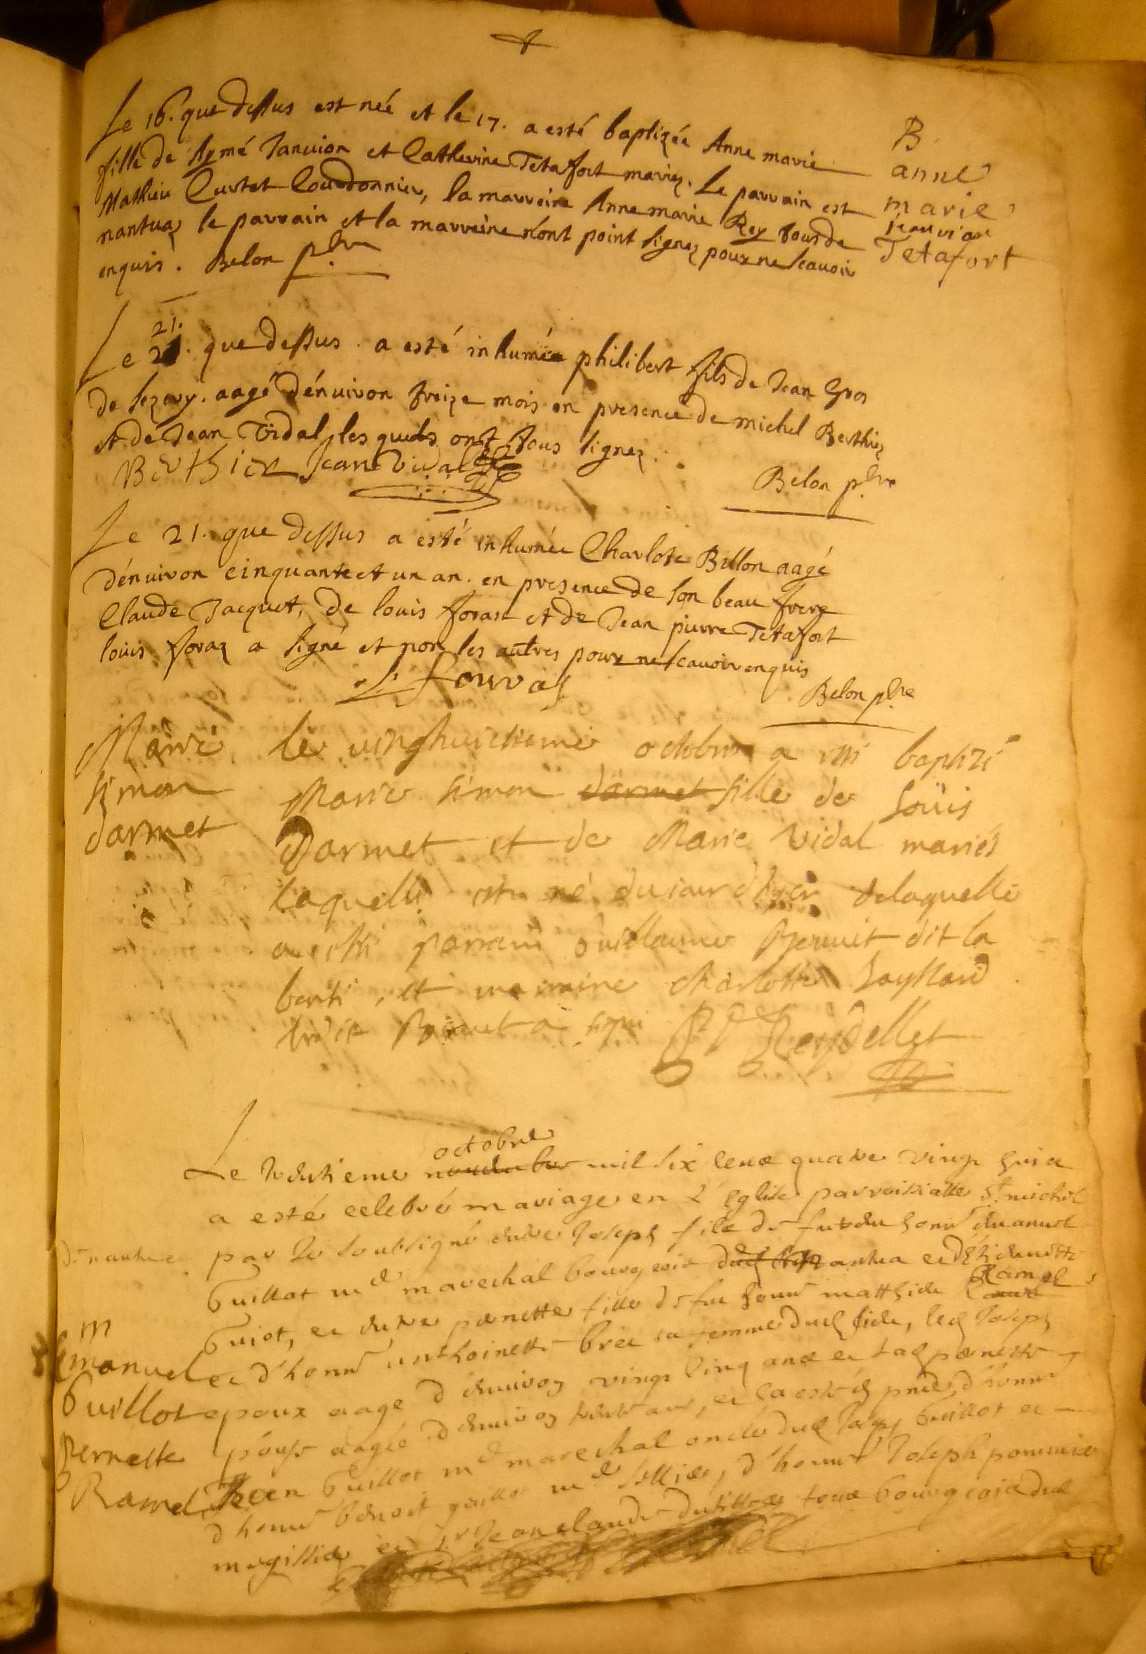 Le 16. que dessus est née et le 17. a esté baptizée Anne marie
fille de Aymé Janvion et Catherine Tetafort mariez. Le parrain est
Mathieu Curtet Courdonnier, la marreine Anne marie Rey tous de
nantua, le parrain et la marreine n'ont point signez pour ne scavoir
enquis. Belon ptre
B
anne
marie
Jeanvion
Tetafort
21.
Le 21. que dessus. a esté inhumée philibert fils de Jean Gros
de aagé d'énuiron treize mois en presence de michel Berthier
et de Jean Vidal, lesquels ont tous signez.
Berthier Jean Vidal
Belon ptre
Le 21. que dessus a esté inhumée Charlote Billon aagé
d'énuiron cinquante et un an. en presence de son beau frere
Claude Jacquet, de louis foras et de Jean pierre Tetafort
louis foraz a signé et non les autres pour ne scavoir enquis
L forras
Belon ptre
Marie
simon
darmet
le vinghuictieme octobre a esté baptizé
Marie simon darmet fille de Loüis
Darmet et de Marie Vidal mariés
laquelle est né du iour d'hyer de laquelle
a esté parrain guillaume Benuit dit la
et marraine charlotte
a signé Reydellet
octobre
Le mil six cens quatre vingt huict
a esté celebré mariage en l'Eglise parroissialle St. michel
de nantua
par le soubsigné entre Joseph fils de feu honn Emanuel
Guillot md marechal bourgeois nantua et d'
Guiot, et entre pernette fille de feu honn matthieu Ramel
et d'honn anthoinette sa femme dud lieu, led Joseph
epoux aagé d'enuiron vingt cinq ans et lad pernette
m
Emanuel
Guillot
pernette
Ramel
aagée d'enuiron ans, et
Jean Guillot md marechal oncle dud Joseph Guillot et
d'honn benoit guillot md sellier, d'honn Joseph pommier
megissier et Sr Jeanclaude tous bourgeois dud